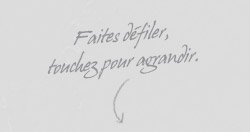 Faites défiler,
touchez pour agrandir.